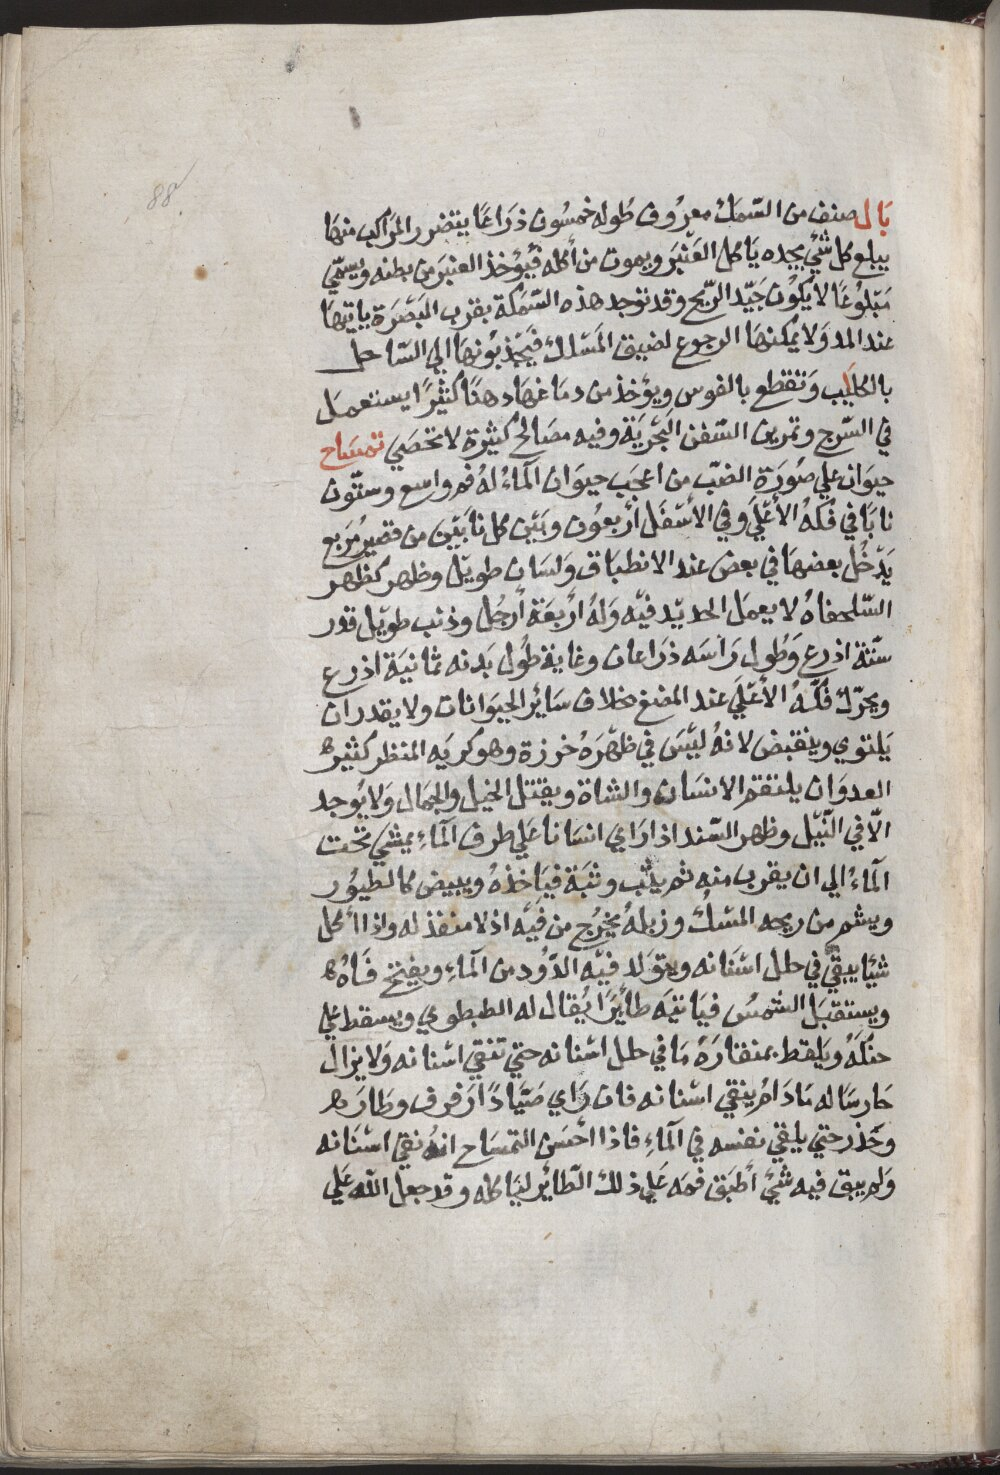 88
بَال صنف من السّمك معرُوف طُوله خمسُون ذرَاعًا يتضرر المرَاكب منهَا
يبلع كل شئ يجده يَاكل العَنْبَر ويموت من أكله فيُوْخذ العنبَر من بطنه ويسمّي
مَبْلُوعًا لا يكوُن جَيّد الرّيح وقد توجد هذه السّمكة بقرب البَصْرَة ياتيهَا
عند المد وَلا يمكنهَا الرجوع لضيق المَسْلك فيَجْذبوُنهَا الي السّاحل
بالكلاليب وَتقطع بالفوس ويؤخذ من دمَاغهَا دهنًا كثيْرًا يستعمل
في السّرج وتمرين السّفن البَحْريَة وفيه مصَالح كثيْرة لا تحصَي تمسَاح
حيوَان علي صُورَة الضبّ من اعْجَب حيوَان الْمآءُ لهُ فم واسع وستّون
نابًا في فكهُ الأعْليَ وفي الأسْفَل أرْبعُون وبَيْن كل نابَيْن من قصير مُرَبع
يَدْخُل بعضهَا في بعض عند الانطباق وَلسَان طويْل وظهر كظهر
السّلحفاهُ لا يعمل الحديْد فيْه وَلهُ أرْبعَة أرجُل وذنب طويْل قدر
ستّة اذرع وَطُول رَاسَه ذرَاعان وغاية طُول بَدنه ثمانيَة اذرع
ويحرّك فكّهُ الأعْليَ عند المضغ بخلاف سَائر الحيَوَانات ولا يقدر ان
يَلتوي وينقبض لانهُ ليْسَ في ظهْرَهُ خرزة وهو كريَه المنظر كثيْره
العدوَان يلتقم الانسَان والشاة ويقتل الخيل والجمَال وَلا يُوجد
الّا في النّيْل وظهر السّند اذا رَاي انسَانا عَلي طرف المآءِ يمشي تحت
المآءُ الي ان يقرب منه ثم يثب وثبَة فيَاخذهُ ويبيض كالطيوُر
ويشم من ريحه المسْكُ وزبلهُ يخْرُج من فيْه اذ لا منفذ له واذا أكل
شيْا يبقيْ في خلل اسْنَانه ويتوَلد فيْه الدّوُد من المآءِ ويفتح فَاهُ
ويستقبَل الشمسُ فيَاتيَه طأيْرًا يُقال له الطبطوي ويسقط علي
حنكهُ ويَلقط بمنقارَهُ مَا في خلل اسْنانه حتي تنقي اسْنانه وَلا يزال
حَارسَا له مَا دَامُ ينقي اسْنانه فان رَاي صَيّادًا رَفرف وطارَ
وحَذر حتي يلقي نفسه في المآءِ فاذا احْسَن التمسَاح انهُ نقي اسْنَانه
وَلم يبق فيه شيْ أطبَق فمَه عَلي ذلك الطّائر ليَاكله وقد جعل اللّه عَلي